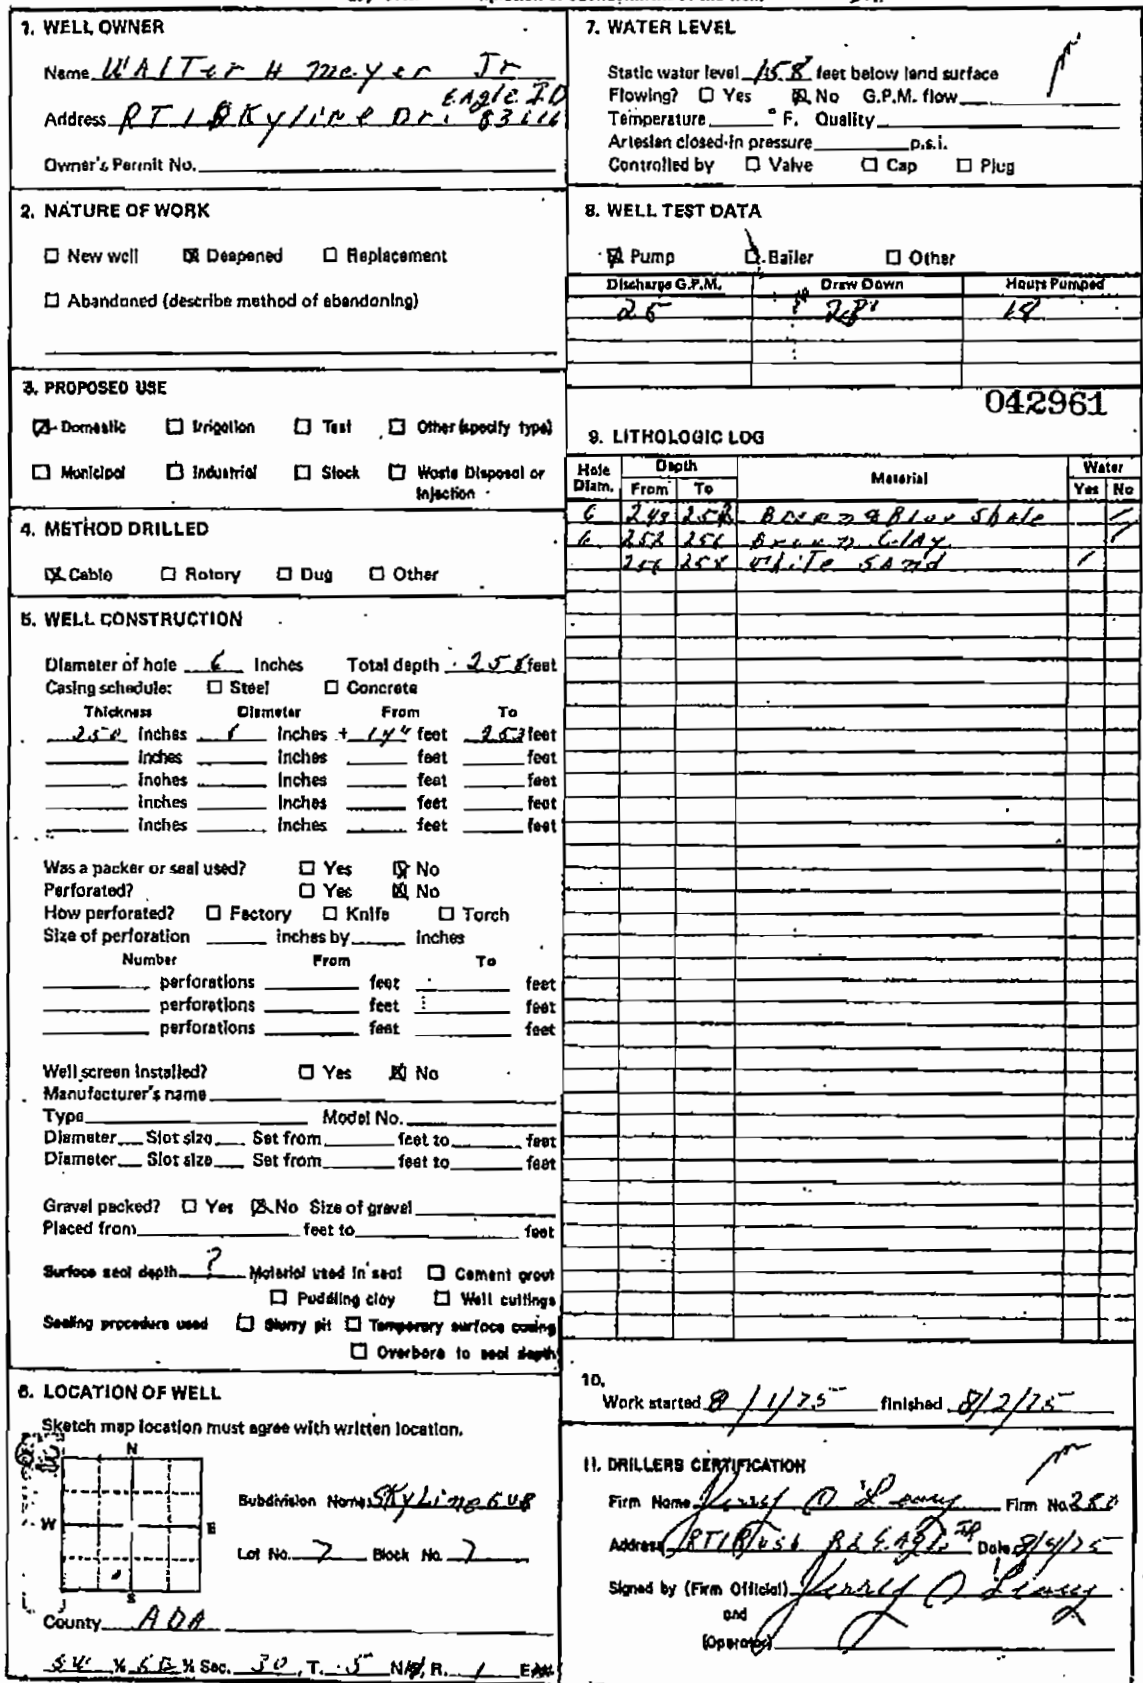 1. WELL OWNER
Name WALTer H Meyer Jr
Eagle ID
Address RT 1 SKyline Dr. 83616
Owner's Permit No.
2. NATURE OF WORK
☐ New well ☒ Deepened ☐ Replacement
☐ Abandoned (describe method of abandoning)
3. PROPOSED USE
☒ Domestic ☐ Irrigation ☐ Test ☐ Other (specify type)
☐ Municipal ☐ Industrial ☐ Stock ☐ Waste Disposal or
Injection
4. METHOD DRILLED
☒ Cable ☐ Rotory ☐ Dug ☐ Other
5. WELL CONSTRUCTION
Diameter of hole 6 Inches Total depth 258 feet
Casing schedule: ☐ Steel ☐ Concrete
Thickness Diameter From To
.250 inches 6 Inches + feet 253 feet
inches Inches feet feet
inches Inches feet feet
inches Inches feet feet
inches Inches feet feet
Was a packer or seal used? ☐ Yes ☒ No
Perforated? ☐ Yes ☒ No
How perforated? ☐ Factory ☐ Knife ☐ Torch
Size of perforation inches by inches
Number From To
perforations feet feet
perforations feet feet
perforations feet feet
Well screen installed? ☐ Yes ☒ No
Manufacturer's name
Type Model No.
Diameter Slot size Set from feet to feet
Diameter Slot size Set from feet to feet
Gravel packed? ☐ Yes ☒ No Size of gravel
Placed from feet to feet
Surface seal depth ? Material used in seal ☐ Cement grout
☐ Puddling clay ☐ Well cuttings
Sealing procedure used ☐ Slurry pit ☐ Temporary surface casing
☐ Overbore to seal depth
6. LOCATION OF WELL
Sketch map location must agree with written location.
N
W E
S
Subdivision Name SKyLine SUB
Lot No. 7 Block No. 7
County ADA
SW ¼ SE ¼ Sec. 30, T. 5 N, R. 1 E
7. WATER LEVEL
Static water level 158 feet below land surface
Flowing? ☐ Yes ☒ No G.P.M. flow
Temperature ° F. Quality
Artesian closed-in pressure p.s.i.
Controlled by ☐ Valve ☐ Cap ☐ Plug
8. WELL TEST DATA
☒ Pump ☐ Bailer ☐ Other
Discharge G.P.M. Draw Down Hours Pumped
25
042961
9. LITHOLOGIC LOG
Hole Diam. Depth Material Water
From To Yes No
6 249 252 Brown & Blue Shale
6 252 256 Brown CLAY
256 258 White SAnd
10.
Work started 8/1/75 finished 8/2/75
11. DRILLERS CERTIFICATION
Firm Name Firm No. 280
Address RT 1 EAgle ID Date 8/4/75
Signed by (Firm Official)
and
(Operator)